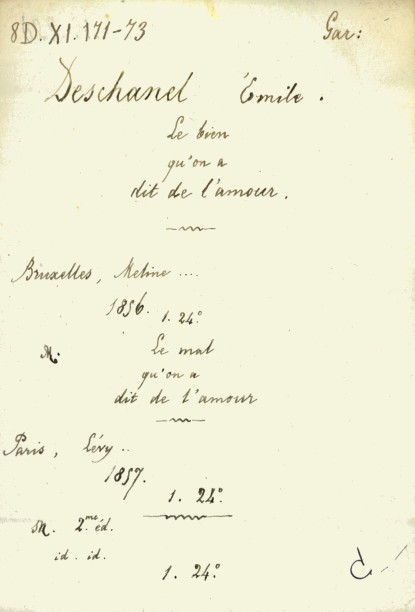 8D. XI. 171-73 Gar:
Deschanel Émile.
Le bien
qu'on a
dit de l'amour.
Bruxelles, Meline ....
1856.
1. 24°.
M.
Le mal
qu'on a
dit de l'amour
Paris, Lévy ..
1857.
1. 24°.
2.me éd.
id. id.
1. 24°.